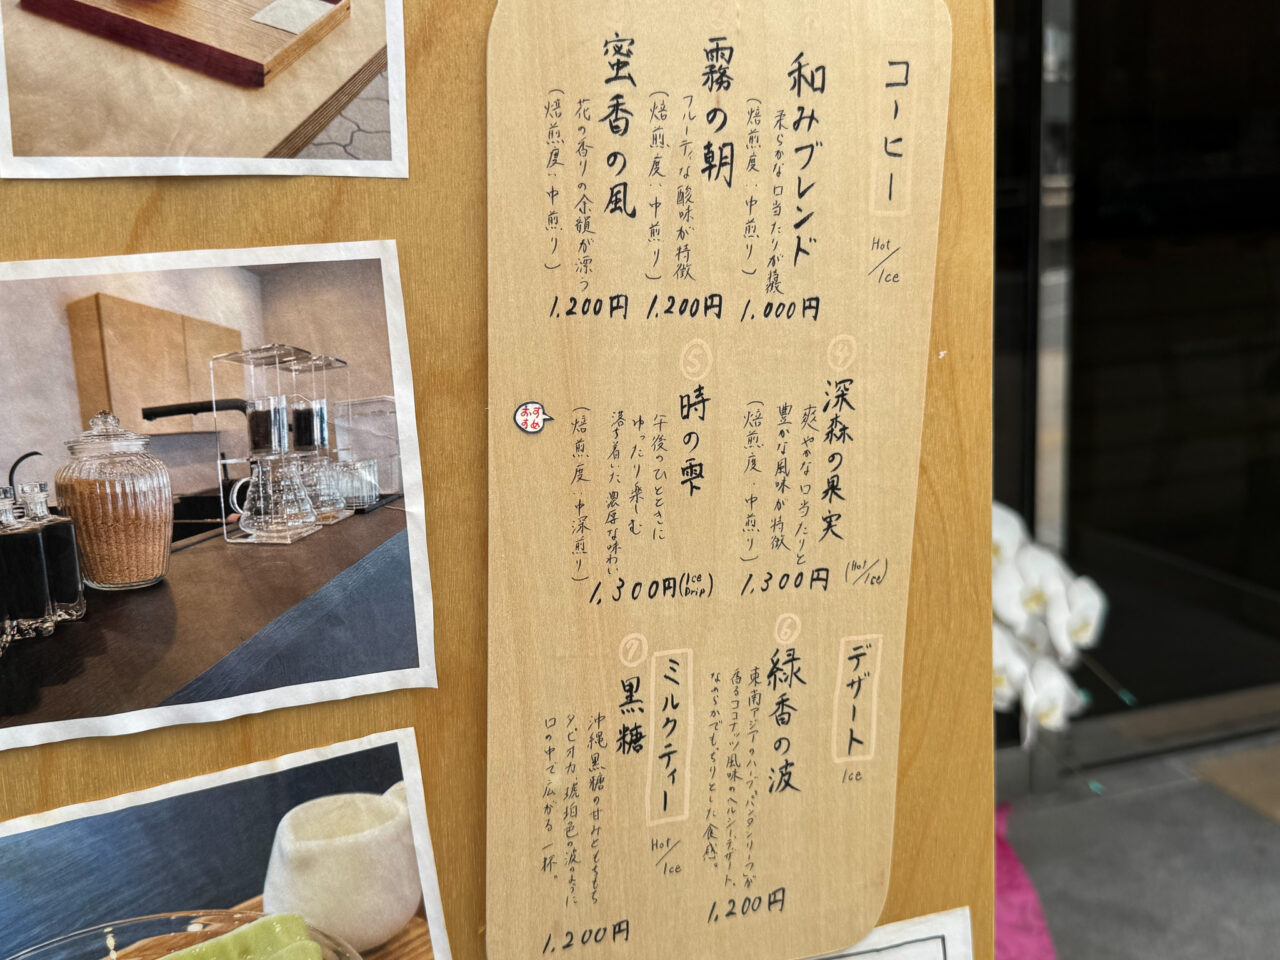 コーヒー
Hot/Ice
和みブレンド
柔らかな口当たりが特徴
(焙煎度:中煎り)
1,000円
霧の朝
フルーティな酸味が特徴
(焙煎度:中煎り)
1,200円
蜜香の風
花の香りの余韻が漂う
(焙煎度:中煎り)
1,200円
④
深森の果実
爽やかな口当たりと
豊かな風味が特徴
(焙煎度:中煎り)
1,300円(Hot/Ice)
⑤
時の雫
午後のひとときに
ゆったり楽しむ
落ち着いた濃厚な味わい
(焙煎度:中深煎り)
1,300円(Ice Drip)
おすすめ
デザート
Ice
⑥
緑香の波
東南アジアのハーブ“パンダンリーフ”が
香るココナッツ風味のヘルシーデザート。
なめらかでもっちりとした食感。
1,200円
ミルクティー
Hot/Ice
⑦
黒糖
沖縄黒糖の甘みともちもち
タピオカ、琥珀色の波のように
口の中で広がる一杯。
1,200円